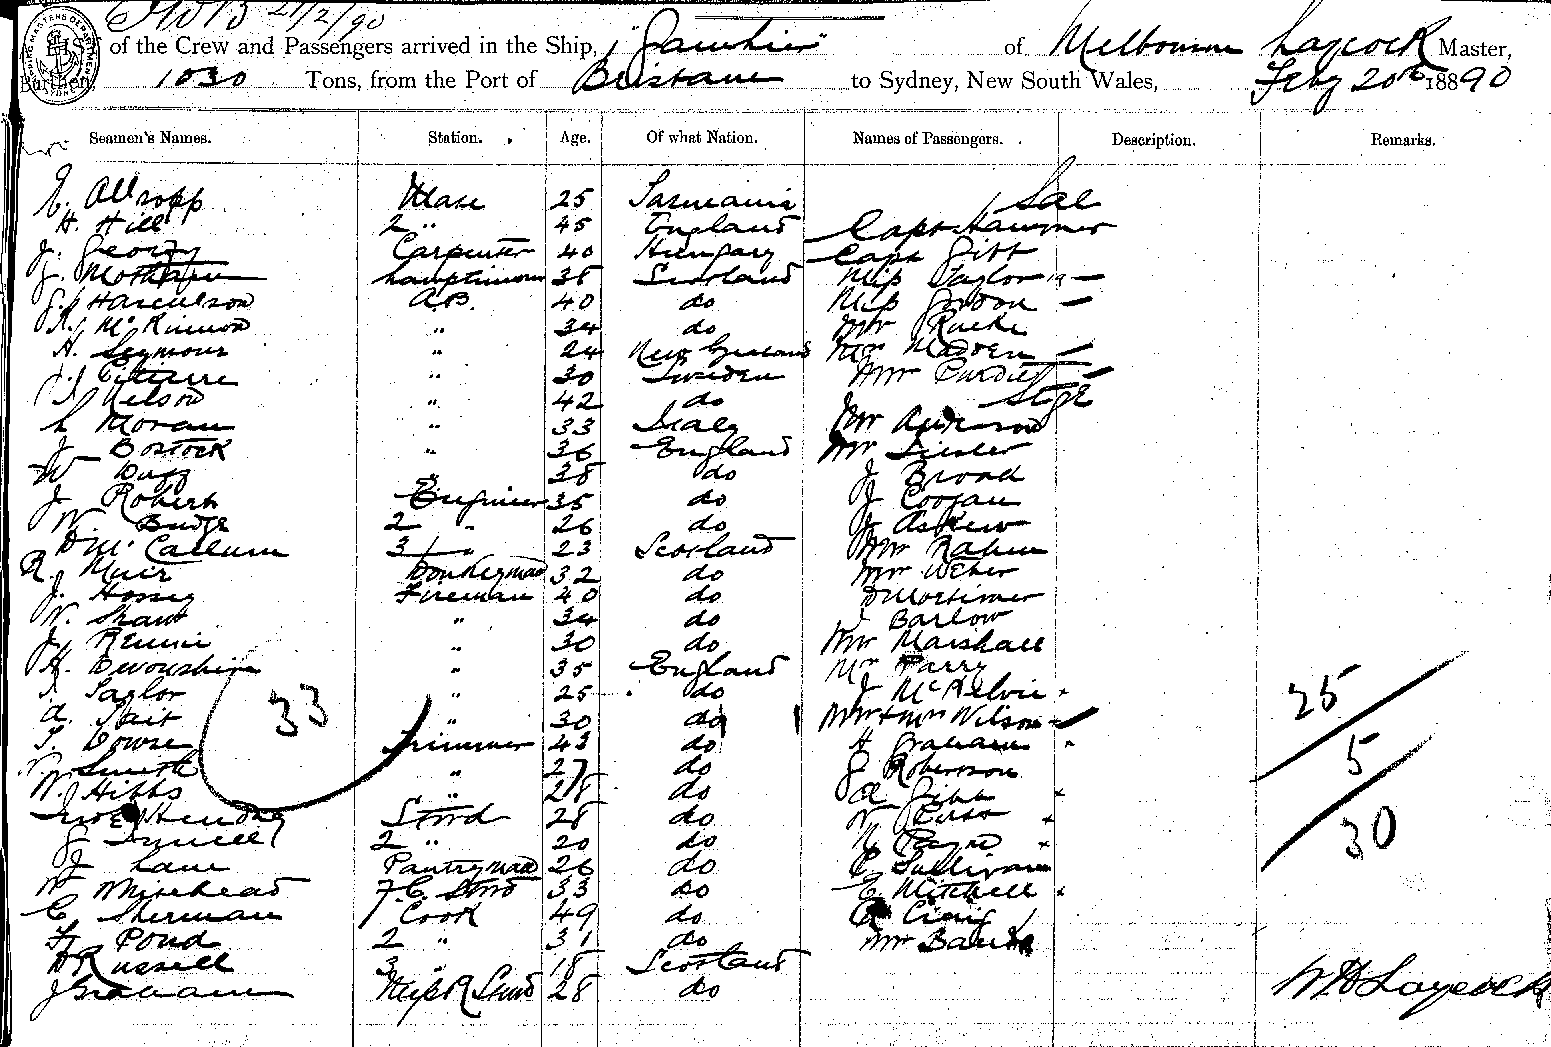 21/2/90
of the Crew and Passengers arrived in the Ship, "Gawhier" of Melbourne Laycock Master,
Burthen, 1030 Tons, from the Port of Brisbane to Sydney, New South Wales, Feby 20th 1890
Seamen's Names. Station. Age. Of what Nation. Names of Passengers. Description. Remarks.
E. Allsopp Mate 25 Tasmania Sal
H. Hill 2 " 45 England Capt Hammer
J. Georgy Carpenter 40 Hungary Capt Gibb
J. Lamptrimmer 38 Scotland Miss Taylor
J. A.B. 40 do Miss Gordon
McKinnon " 34 do Mr
H. Seymour " 24 New Zealand Mr Madden
" 30 Sweden Mr
J. Nelson " 42 do Stge
L Moran " 33 Italy Mr Anderson
J Bostock " 36 England Mr
W Duff " 38 do J Broad
J Robert Engineer 35 do J Coogan
W Budge 2 " 26 do J Askew
D McCallum 3 " 23 Scotland Mr Rahm
R. Muir Donkeyman 32 do Mr Weber
J. Fireman 40 do D Mortimer
W. Shaw " 34 do J Barlow
J. Rennie " 30 do Mr Marshall
H. Devonshire " 35 England Mr Parry
Taylor " 25 do J McKelvie
A. Tait " 30 do Mr & Mrs Wilson
T. Dowse Trimmer 43 do H Graham
Smith " 27 do J Robertson
W. Hibbs " 28 do A Gibb
Hendry Stwd 28 do W
J 2 " 20 do N Payne
J Lane Pantryman 26 do C Sullivan
W Whitehead F.C. Stwd 33 do E Mitchell
C. Sherman Cook 49 do Craig
H Pond 2 " 31 do Mr Banks
D Russell 3 " 18 Scotland
J Graham MessR Stwd 28 do
33
25
5
30
WH Laycock